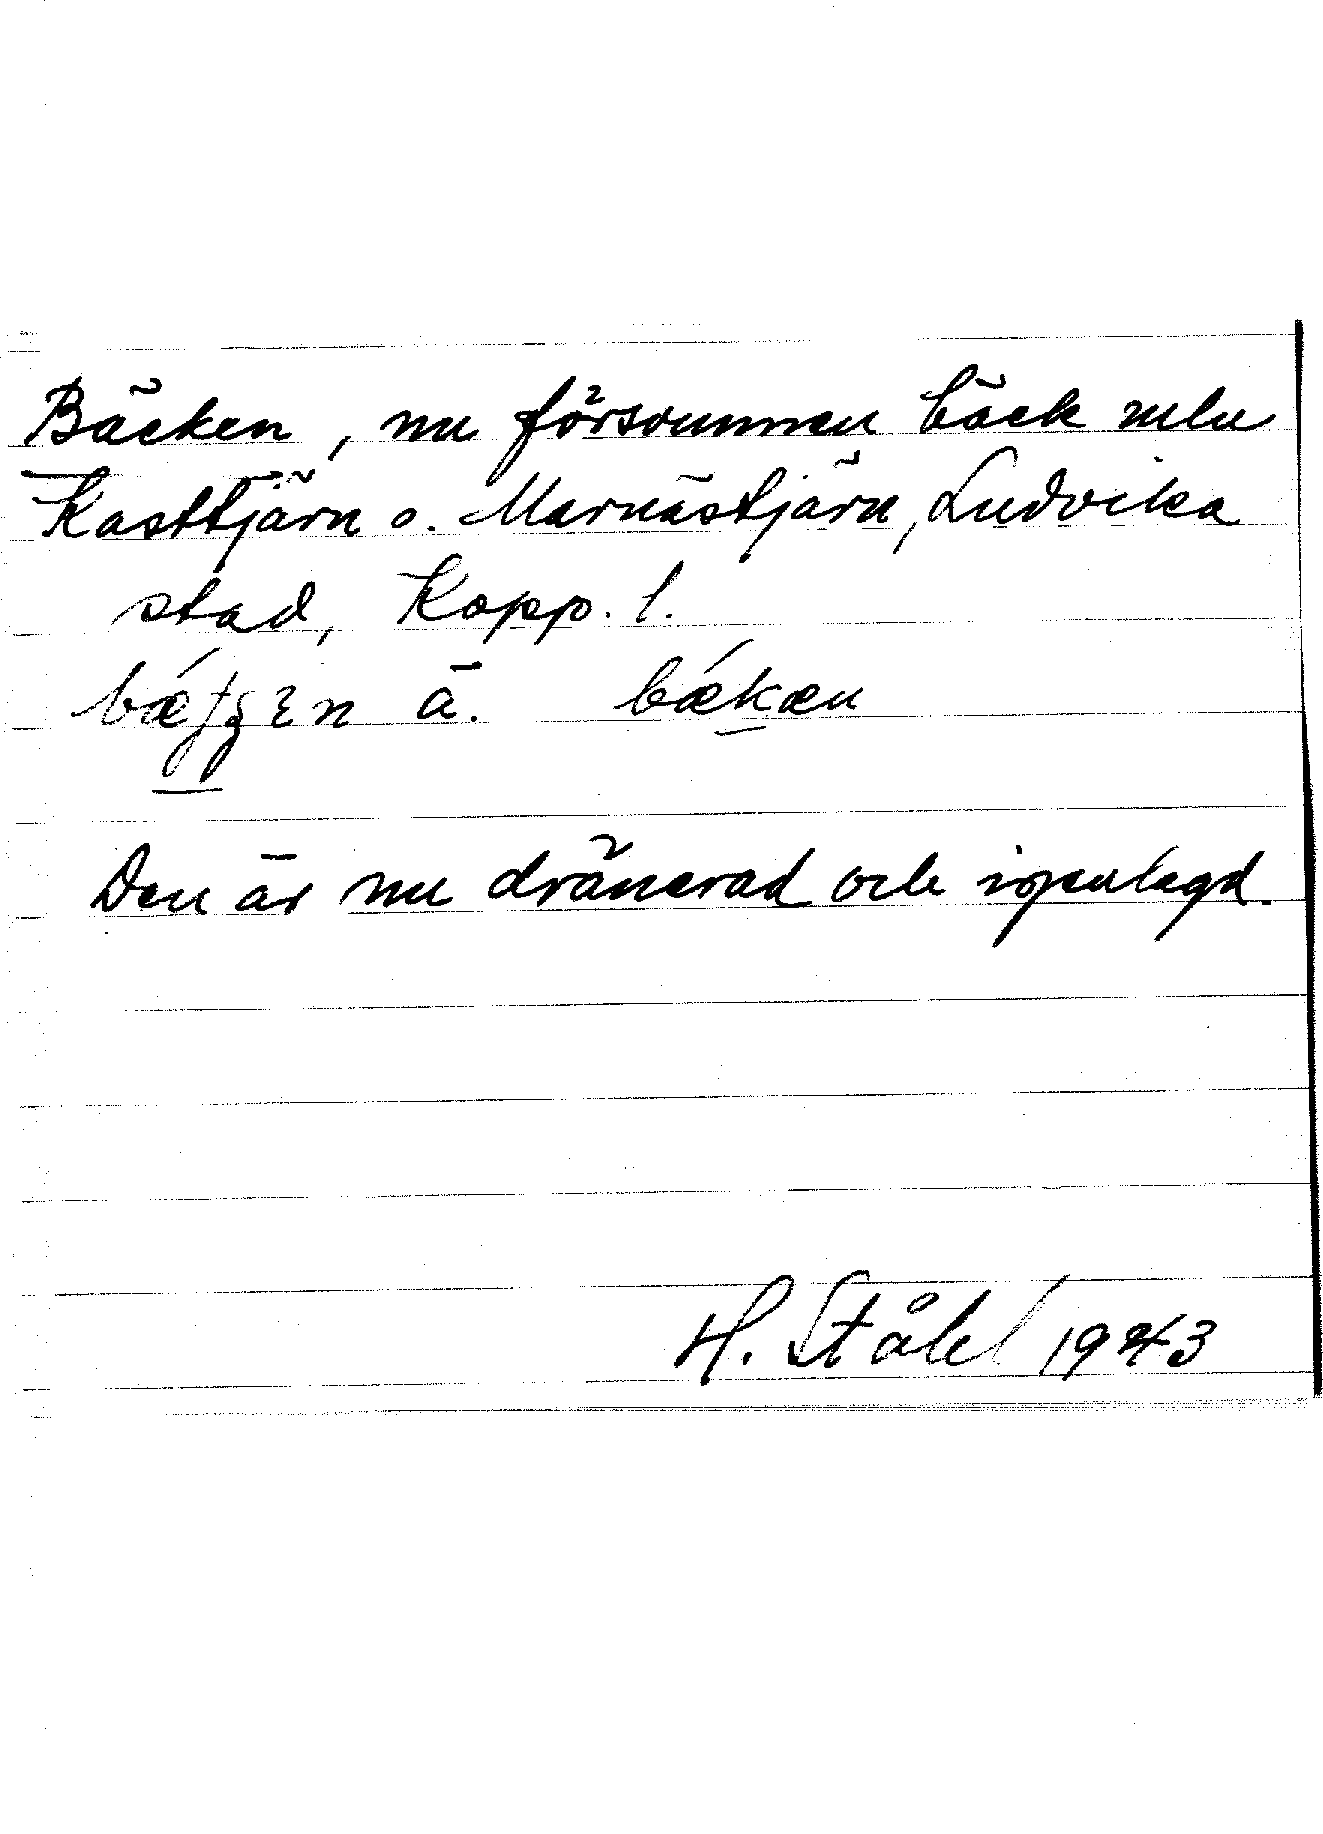 Bäcken, nu försvunnen bäck mln
Kasttjärn o. Marnästjärn, Ludvika
stad, Kopp. l.
ä. bækæn
Den är nu dränerad och igenlagd.
H. Ståhl 1943